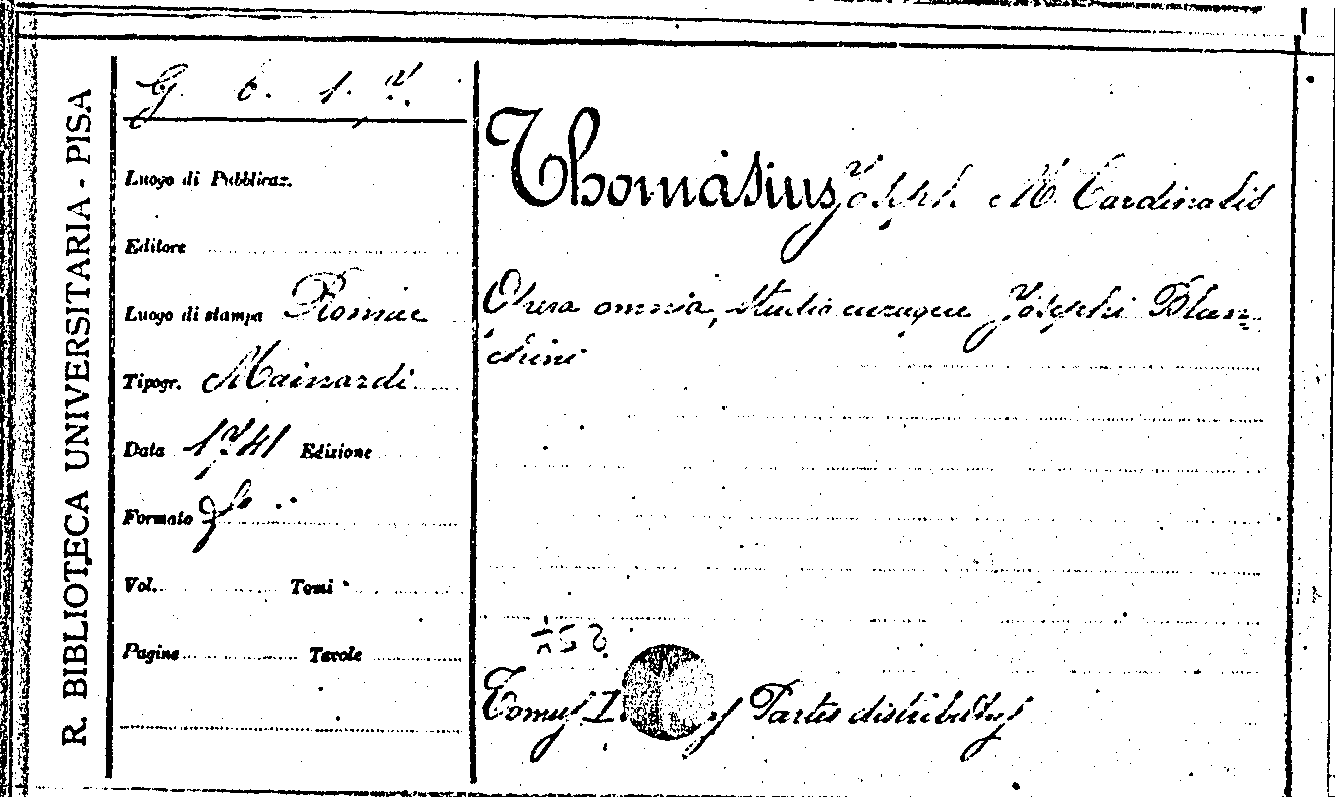 R. BIBLIOTECA UNIVERSITARIA - PISA
G. 6. 1. 7.
Luogo di Pubblicaz.
Editore
Luogo di stampa Romae
Tipogr. Mainardi
Data 1741 Edizione
Formato f.lo
Vol. Tomi
Pagine Tavole
Thomasius Joseph. M. Cardinalis
Opera omnia, studio curaque Josephi Blan-
chini
Tomus I. Partes distributus